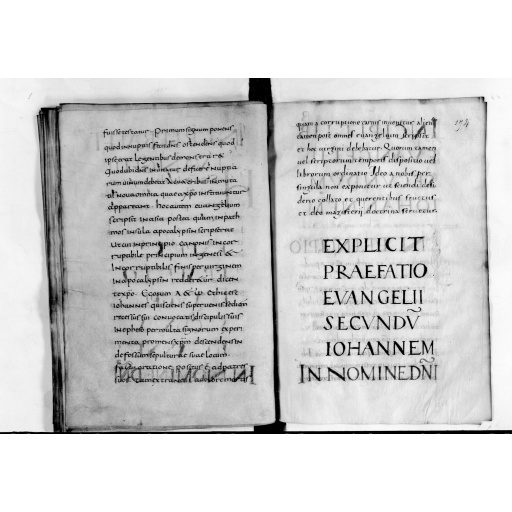 fuisset testatus. Primum signum ponens
quod in nuptiis fecit dns ostendens quod
ipse erat legentibus demonstraret
quod ubi dns invitatus deficere nuptia
rum vinum debeat ut veteribus inmuta
tis nova omnia quae a xpo instituuntur
appareant. hoc autem evangelium
scripsit in asia postea quam in path
mos insula apocalypsin scripserat
ut cui in principio canonis incor
ruptibile principium in genesi &
incorruptibilis finis per virginem
in apocalypsin redderetur dicen
te xpo. Ego sum A & ω. & hic est
iohannes qui sciens supervenisse diem
recessus sui convocatis discipulis suis
in epheso per multa signorum experi
menta promens xpm descendens in
defossum sepulturae suae locum
facta oratione positus e ad patres
suos tam extraneus a dolore mortis
194
quam a corruptione carnis invenitur alien
tamen post omnes evangelium scripsit
et hoc virgini debebatur. Quorum tamen
vel scriptorum temporis dispositio vel
librorum ordinatio ideo a nobis per
singula non exponitur ut sciendi desi
derio collato et querentibus fructus
et dei magisterii doctrina servetur.
EXPLICIT
PRAEFATIO
EVANGELII
SECVNDṼ
IOHANNEM
IN NOMINE DÑI